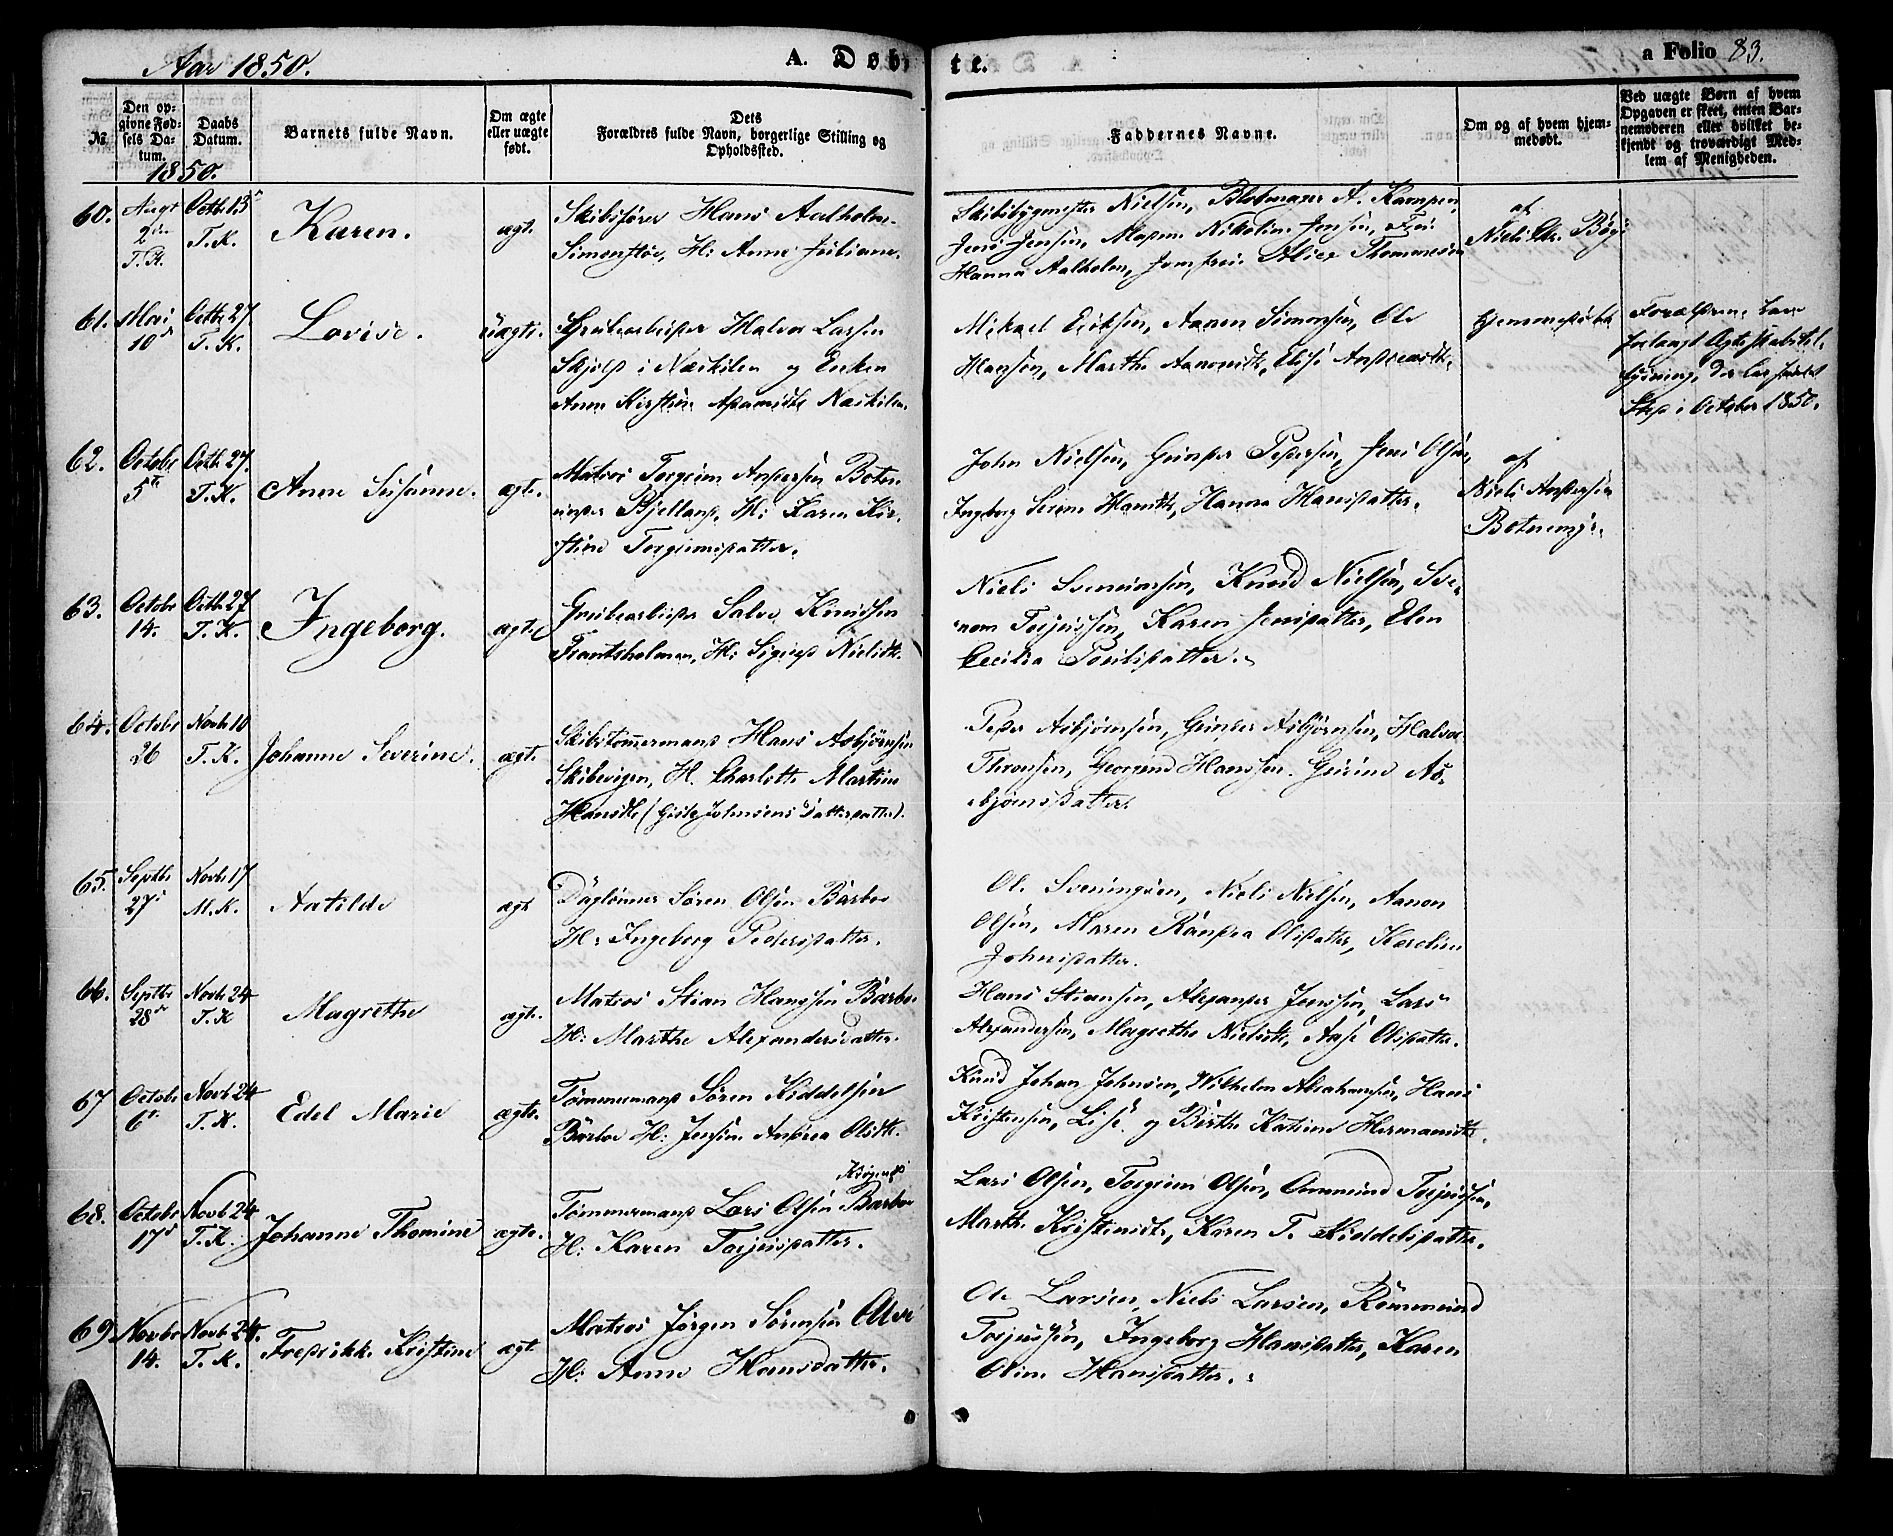 Aar 1850.
A. Døbte.
a Folio 83.
№
Den opgivne Fødsels Datum.
Daabs Datum.
Barnets fulde Navn.
Om ægte eller uægte født.
Dets Forældres fulde Navn, borgerlige Stilling og Opholdssted.
Faddernes Navne.
Om og af hvem hjemmedøbt.
Ved uægte Børn af hvem Opgaven er skeet, enten Barnemoderen eller hvilket bekjendt og troværdigt Medlem af Menigheden.
1850.
60. Augt 2den T.K.
Octb 13
T.K.
Karen.
ægte
Skibsfører Hans Aalholm
Simonstøe, H: Anne Juliane.
Skibsbygmester Nielsen, Blokmager A. Kampen,
Jens Jensen, Mad. Nikoline Jensen, Frue
Hanna Aalholm, Jomfrue Alice Thommesen
af
Niels Chr. Bøge
61. Mai 10
Octb 27
T.K.
Lovise.
uægte.
Grubearbeider Halvor Larsen
i Næskilen og Enken
Anne Kirstine Næskilen
Mikael Eriksen, Aanen Simonsen, Ole
Hansen, Marthe Aanonsdtr, Elise
hjemmedøbt
Forældrene have
forlangt Ægteskabs
lysning, der har fundet
Sted i October 1850.
62. Octobr 5te
Octb 27.
T.K.
Anne Susanne.
ægte.
Matros Torgrim Andersen Botne
under Bjelland, H: Karen Kir-
stine Torgrimsdatter.
John Nielsen, Gunder Pedersen, Jens Olsen,
Ingborg Serene Hansdtr, Hanna Hansdatter.
af
Niels Andersen
Botnemyr.
63. Octobr 14.
Octb 27
T.K.
Ingeborg.
ægte
Grubearbeider Salve Knudsen
Frantsholmen, H: Sigrid Nielsdtr.
Niels Svennumsen, Knud Nielsen, Sve-
nom Terjussen, Karen Jensdatter, Elen
Cecilia Poulsdatter.
64. Octobr 26
Novb 10
T.K.
Johanne Severine.
ægte
Skibstømmermand Hans Asbjørnsen
Skibevigen, H. Charlotte Martine
Hansdtr (Gisle Johnsens Datterdatter).
Peder Asbjørnsen, Gunder Asbjørnsen, Halvor
Thronsen, Georgend Hanssen. Gurine As-
bjørnsdatter.
65. Septbr 27
Novb 17
M.K.
Aatilde
ægte
Dagløner Søren Olsen Barbo
H: Ingeborg Pedersdatter.
Ole Sveningsen, Niels Nielsen, Aanon
Olsen, Maren Randea Olsdatter, Karoline
Johnsdatter.
66. Septbr 28de
Novb 24
T.K
Magrethe
ægte.
Matros Stian Hanssen Barbo
H: Marthe Alexandersdatter.
Hans Stiansen, Alexander Jenssen, Lars
Alexandersen, Magrethe Nielsdtr, Aase Olsdatter.
67 Octobr 6te
Novb 24
T.K.
Edel Marie
ægte.
Tømmermand Søren Kiddelsen
Barboe H: Jensine Andrea Olsdtr.
Knud Johan Johnsen, Wilhelm Abrahamsen, Hans
Kristensen, Lise og Birthe Katrine Hermansdtr.
68. Octobr 17de
Novb 24
T.K.
Johanne Thomine
ægte.
Tømmermand Lars Olsen Barboe
H: Karen Terjusdatter.
Lars Olsen, Torgrim Olsen, Ommund Terjussen,
Marthe Kristensdtr, Karen T. Kiddelsdatter.
69 Novbr 14.
Novb 24.
T.K.
Fredrikke Kristine
ægte
Matros Jørgen Sørensen
H: Anne Hansdatter.
Ole Larsen, Niels Larsen, Rommund
Terjussen, Ingeborg Hansdatter, Karen
Oline Hansdatter.